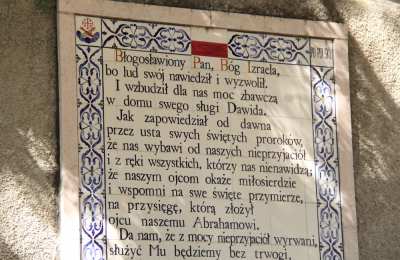 Błogosławiony Pan, Bóg Izraela,
bo lud swój nawiedził i wyzwolił.
I wzbudził dla nas moc zbawczą
w domu swego sługi Dawida.
Jak zapowiedział od dawna
przez usta swych świętych proroków,
że nas wybawi od naszych nieprzyjaciół
i z ręki wszystkich, którzy nas nienawidzą;
że naszym ojcom okaże miłosierdzie
i wspomni na swe święte przymierze,
na przysięgę, którą złożył
ojcu naszemu Abrahamowi.
Da nam, że z mocy nieprzyjaciół wyrwani,
służyć Mu będziemy bez trwogi,